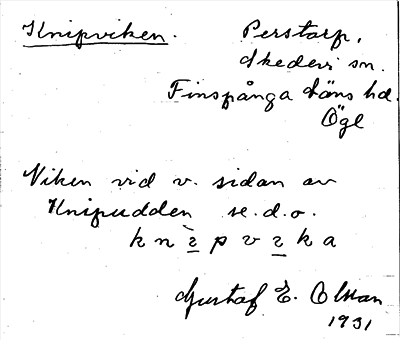 Knipviken. Perstorp,
Skedevi sn.
Finspånga läns hd.
Ögl
Viken vid v. sidan av
Knipudden se.d.o.
k n ɩ̀ p v ɩ k a
Gustaf E. Olsson
1931